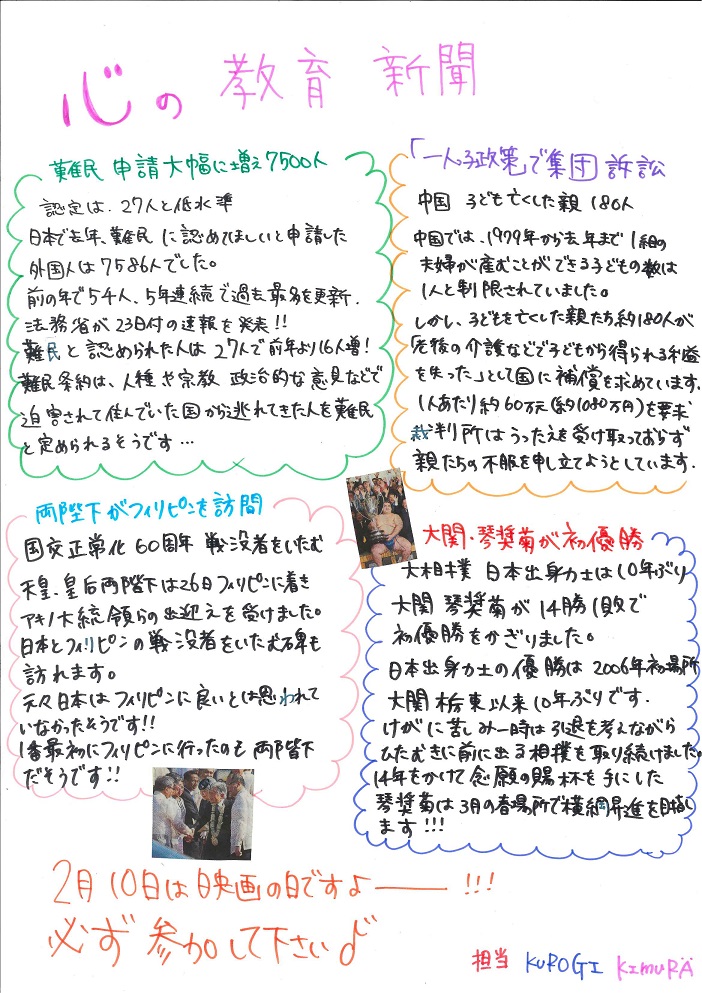 心の教育 新聞
難民 申請大幅に増え7500人
認定は、27人と低水準
日本で去年、難民に認めてほしいと申請した
外国人は7586人でした。
前の年で54人、5年連続で過去最多を更新.
法務省が23日付の速報を発表!!
難民と認められた人は27人で前年より16人増!
難民条約は、人種や宗教 政治的な意見などで
迫害されて住んでいた国から逃れてきた人を難民
と定められるそうです…
「一人っ子政策」で集団訴訟
中国 子ども亡くした親 180人
中国では、1979年から去年まで1組の
夫婦が産むことができる子どもの数は
1人と制限されていました。
しかし、子どもを亡くした親たち約180人が
「老後の介護などで子どもから得られる利益
を失った」として国に補償を求めています.
1人あたり約60万元(約1080万円)を要求
裁判所はうったえを受け取っておらず
親たちの不服を申し立てようとしています.
両陛下がフィリピンを訪問
国交正常化60周年 戦没者をいたむ
天皇、皇后両陛下は26日フィリピンに着き
アキノ大統領らの出迎えを受けました。
日本とフィリピンの戦没者をいたむ碑も
訪れます。
元々日本はフィリピンに良いとは思われて
いなかったそうです!!
1番最初にフィリピンに行ったのも両陛下
だそうです!!
大関・琴奨菊が初優勝
大相撲 日本出身力士は10年ぶり
大関 琴奨菊が14勝1敗で
初優勝をかざりました。
日本出身力士の優勝は2006年初場所
大関栃東以来10年ぶりです.
けがに苦しみ一時は引退を考えながら
ひたむきに前に出る相撲を取り続けました。
14年をかけて念願の賜杯を手にした
琴奨菊は3月の春場所で横綱昇進を目指し
ます!!!
2月10日は映画の日ですよ――!!!
必ず参加して下さい♪
担当 KUROGI KIMURA